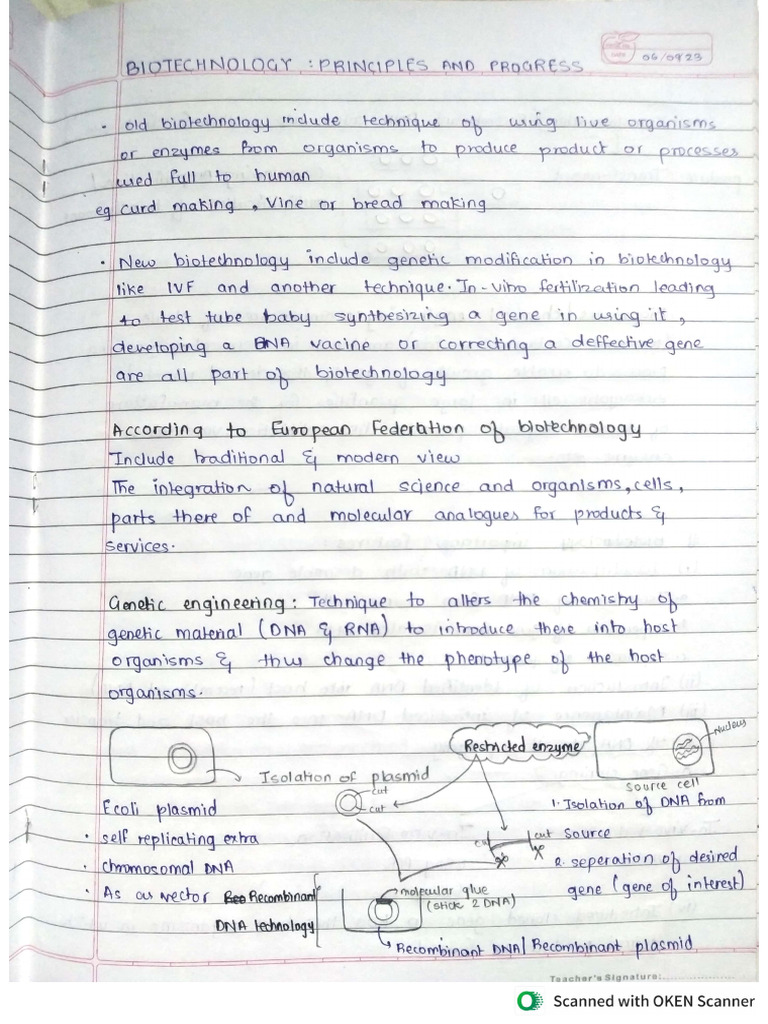 06/09/23
BIOTECHNOLOGY : PRINCIPLES AND PROGRESS
• old biotechnology include technique of using live organisms
or enzymes from organisms to produce product or processes
used full to human
eg curd making , Vine or bread making
• New biotechnology include genetic modification in biotechnology
like IVF and another technique. In-vitro fertilization leading
to test tube baby synthesizing a gene in using it ,
developing a DNA vacine or correcting a deffective gene
are all part of biotechnology
According to European Federation of biotechnology
Include traditional & modern view
The integration of natural science and organisms, cells,
parts there of and molecular analogues for products &
services.
Genetic engineering : Technique to alters the chemistry of
genetic material (DNA & RNA) to introduce there into host
organisms & thus change the phenotype of the host
organisms.
Restricted enzyme
Nucleus
Isolation of plasmid
source cell
cut
cut
Ecoli plasmid
1. Isolation of DNA from
• self replicating extra
cut
cut
Source
• chromosomal DNA
2. seperation of desired
gene (gene of interest)
• As a vector Recombinant
DNA technology
molecular glue
(stick 2 DNA)
Recombinant DNA/ Recombinant plasmid
Teacher's Signature:
Scanned with OKEN Scanner